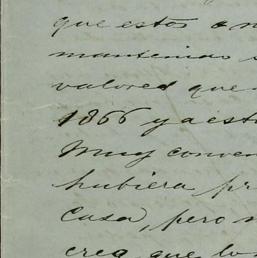 que estos
mantenido
valores que
1866 ya est
Muy conven
hubiera pr
Casa, pero
crea que lo